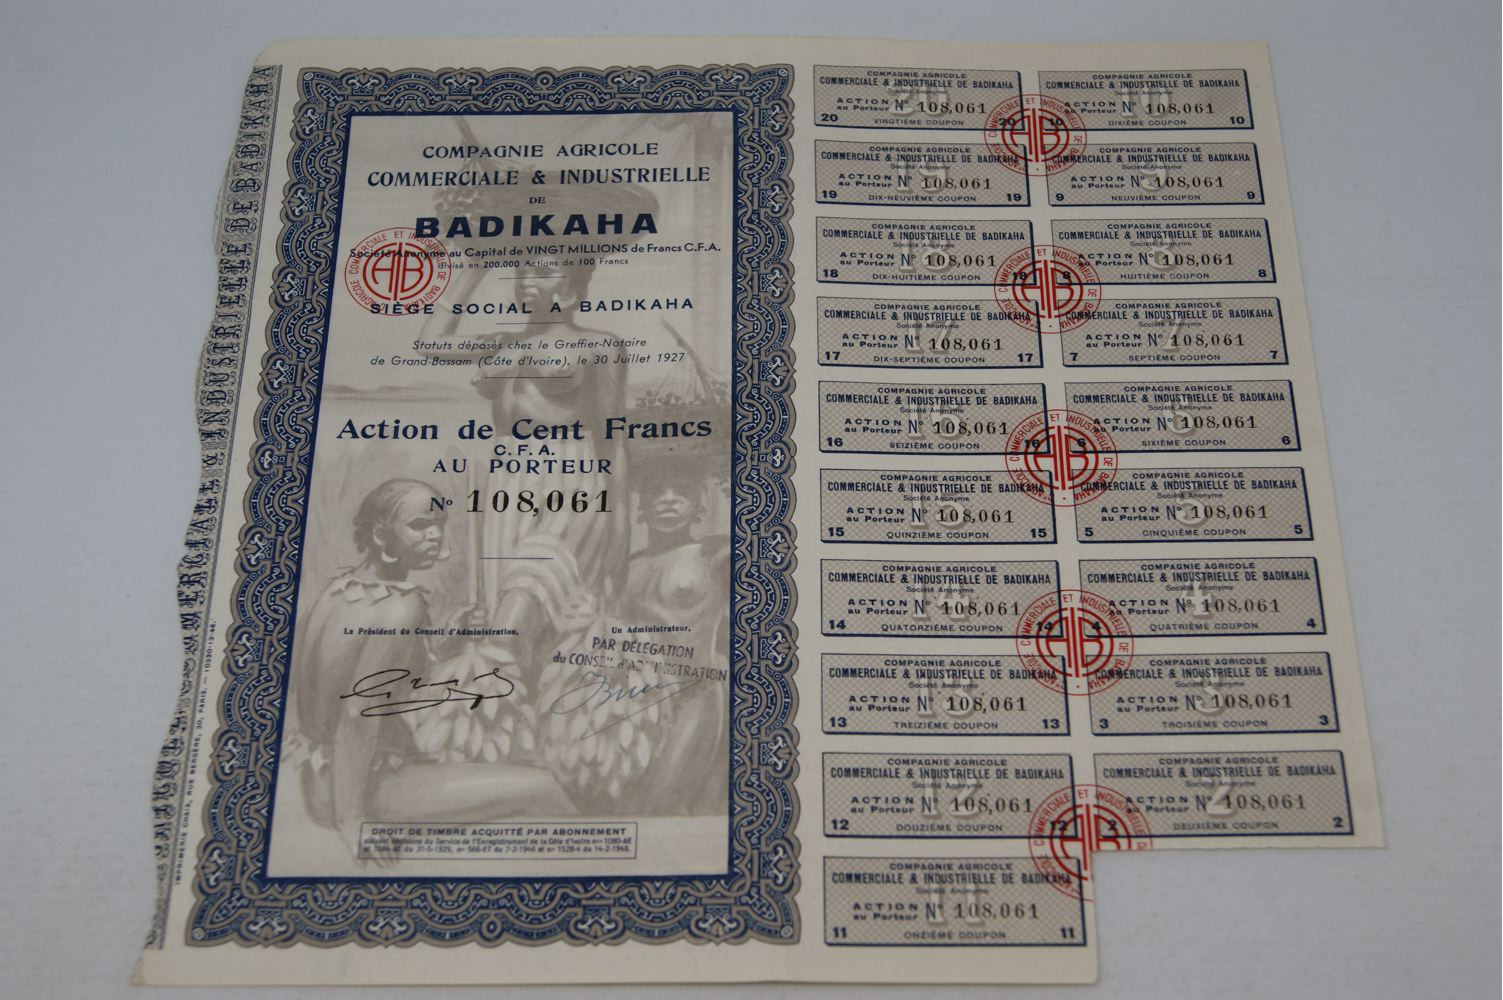 COMPAGNIE AGRICOLE
COMMERCIALE & INDUSTRIELLE
DE
BADIKAHA
Société Anonyme au Capital de VINGT MILLIONS de Francs C.F.A.
divisé en 200.000 Actions de 100 Francs
SIÈGE SOCIAL A BADIKAHA
Statuts déposés chez le Greffier-Notaire
de Grand-Bassam (Côte d'Ivoire), le 30 Juillet 1927
Action de Cent Francs
C.F.A.
AU PORTEUR
No 108,061
Le Président du Conseil d'Administration,
Un Administrateur,
PAR DÉLÉGATION
du CONSEIL d'ADMINISTRATION
DROIT DE TIMBRE ACQUITTÉ PAR ABONNEMENT
suivant décisions du Service de l'Enregistrement de la Côte d'Ivoire nos 1080-AE
du 31-5-1929, no 566-ET du 7-2-1946 et no 1528-4 du 14-2-1948.
COMMERCIALE & INDUSTRIELLE DE BADIKAHA
IMPRIMERIE CHAIX, RUE BERGÈRE, 20, PARIS. — 10330-12-48.
COMPAGNIE AGRICOLE
COMMERCIALE & INDUSTRIELLE DE BADIKAHA
Société Anonyme
ACTION
au Porteur No 108,061
20 VINGTIÈME COUPON 20
COMPAGNIE AGRICOLE
COMMERCIALE & INDUSTRIELLE DE BADIKAHA
Société Anonyme
ACTION
au Porteur No 108,061
10 DIXIÈME COUPON 10
COMPAGNIE AGRICOLE
COMMERCIALE & INDUSTRIELLE DE BADIKAHA
Société Anonyme
ACTION
au Porteur No 108,061
19 DIX-NEUVIÈME COUPON 19
COMPAGNIE AGRICOLE
COMMERCIALE & INDUSTRIELLE DE BADIKAHA
Société Anonyme
ACTION
au Porteur No 108,061
9 NEUVIÈME COUPON 9
COMPAGNIE AGRICOLE
COMMERCIALE & INDUSTRIELLE DE BADIKAHA
Société Anonyme
ACTION
au Porteur No 108,061
18 DIX-HUITIÈME COUPON 18
COMPAGNIE AGRICOLE
COMMERCIALE & INDUSTRIELLE DE BADIKAHA
Société Anonyme
ACTION
au Porteur No 108,061
8 HUITIÈME COUPON 8
COMPAGNIE AGRICOLE
COMMERCIALE & INDUSTRIELLE DE BADIKAHA
Société Anonyme
ACTION
au Porteur No 108,061
17 DIX-SEPTIÈME COUPON 17
COMPAGNIE AGRICOLE
COMMERCIALE & INDUSTRIELLE DE BADIKAHA
Société Anonyme
ACTION
au Porteur No 108,061
7 SEPTIÈME COUPON 7
COMPAGNIE AGRICOLE
COMMERCIALE & INDUSTRIELLE DE BADIKAHA
Société Anonyme
ACTION
au Porteur No 108,061
16 SEIZIÈME COUPON 16
COMPAGNIE AGRICOLE
COMMERCIALE & INDUSTRIELLE DE BADIKAHA
Société Anonyme
ACTION
au Porteur No 108,061
6 SIXIÈME COUPON 6
COMPAGNIE AGRICOLE
COMMERCIALE & INDUSTRIELLE DE BADIKAHA
Société Anonyme
ACTION
au Porteur No 108,061
15 QUINZIÈME COUPON 15
COMPAGNIE AGRICOLE
COMMERCIALE & INDUSTRIELLE DE BADIKAHA
Société Anonyme
ACTION
au Porteur No 108,061
5 CINQUIÈME COUPON 5
COMPAGNIE AGRICOLE
COMMERCIALE & INDUSTRIELLE DE BADIKAHA
Société Anonyme
ACTION
au Porteur No 108,061
14 QUATORZIÈME COUPON 14
COMPAGNIE AGRICOLE
COMMERCIALE & INDUSTRIELLE DE BADIKAHA
Société Anonyme
ACTION
au Porteur No 108,061
4 QUATRIÈME COUPON 4
COMPAGNIE AGRICOLE
COMMERCIALE & INDUSTRIELLE DE BADIKAHA
Société Anonyme
ACTION
au Porteur No 108,061
13 TREIZIÈME COUPON 13
COMPAGNIE AGRICOLE
COMMERCIALE & INDUSTRIELLE DE BADIKAHA
Société Anonyme
ACTION
au Porteur No 108,061
3 TROISIÈME COUPON 3
COMPAGNIE AGRICOLE
COMMERCIALE & INDUSTRIELLE DE BADIKAHA
Société Anonyme
ACTION
au Porteur No 108,061
12 DOUZIÈME COUPON 12
COMPAGNIE AGRICOLE
COMMERCIALE & INDUSTRIELLE DE BADIKAHA
Société Anonyme
ACTION
au Porteur No 108,061
2 DEUXIÈME COUPON 2
COMPAGNIE AGRICOLE
COMMERCIALE & INDUSTRIELLE DE BADIKAHA
Société Anonyme
ACTION
au Porteur No 108,061
11 ONZIÈME COUPON 11